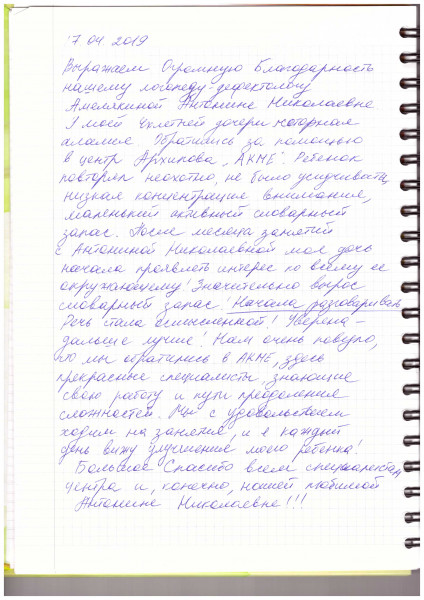 17 04 2019
Выражаем Огромную Благодарность
нашему логопеду-дефектологу
Амелякиной Антонине Николаевне
У моей 4хлетней дочери моторная
алалия. Обратились за помощью
в центр Архипова „АКМЕ". Ребенок
повторял неохотно, не было усидчивости,
низкая концентрация внимания,
маленький активный словарный
запас. После месяца занятий
с Антониной Николаевной моя дочь
начала проявлять интерес ко всему ее
окружающему! Значительно вырос
словарный запас! Начала разговаривать
Речь стала осмысленной! Уверена -
дальше лучше! Нам очень повезло,
что мы обратились в АКМЕ, здесь
прекрасные специалисты, знающие
свою работу и пути преодоления
сложностей. Мы с удовольствием
ходим на занятия, и я каждый
день вижу улучшения моего ребенка!
Большое Спасибо всем специалистам
центра и, конечно, нашей любимой
Антонине Николаевне!!!